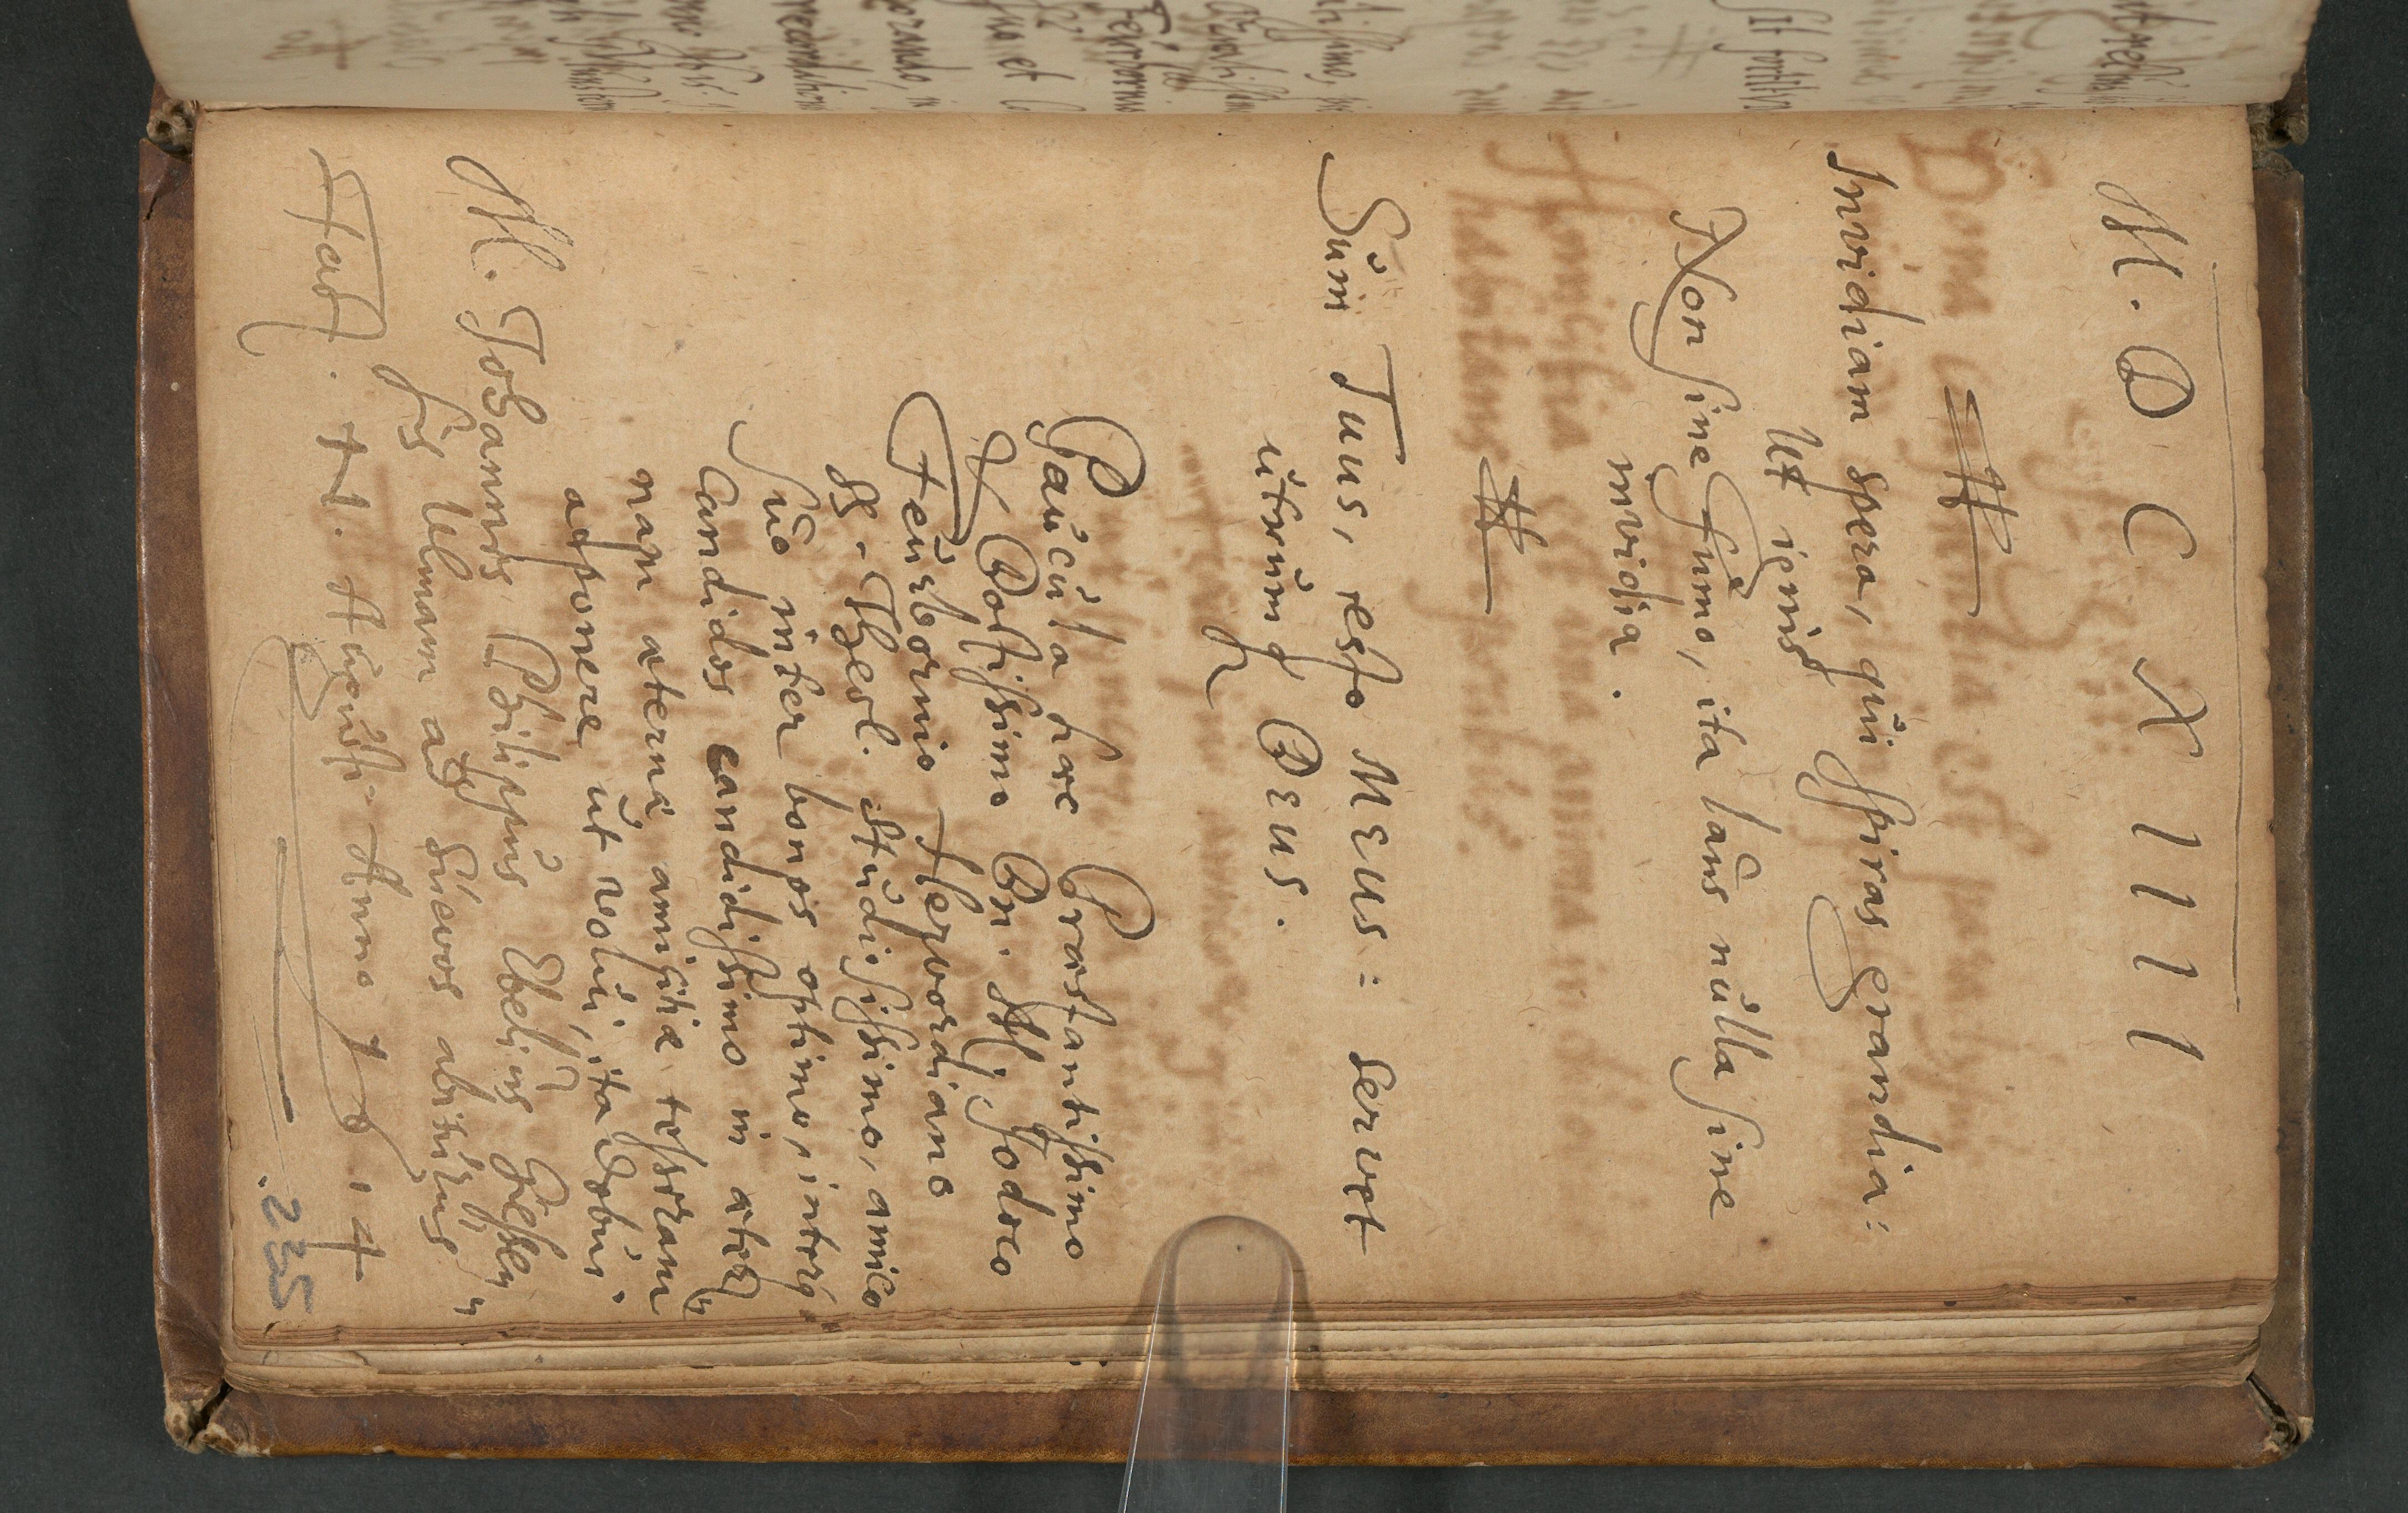 M. D C X I I I I
Invidiam spera, qui speras grandia:
Ut ignis
Non sine fumo, ita laus nulla sine
invidia.
Sum Tuus, esto Meus: servet
utrumq Deus.
Paucula haec Praestantissimo
& Doctissimo Dn. M. Jodoco
Feurbornio Hervordiano
SS. Theol. studiosissimo, amico
suo inter bonos optimo, inter
candidos candidissimo in aeter
nam aeternae amicitiae tesseram
adponere ut volui, ita debui.
M. Johannes Philippus Ebelius Giessen
sis Ulmam ad Suevos abiturus
August. Anno 1614
235